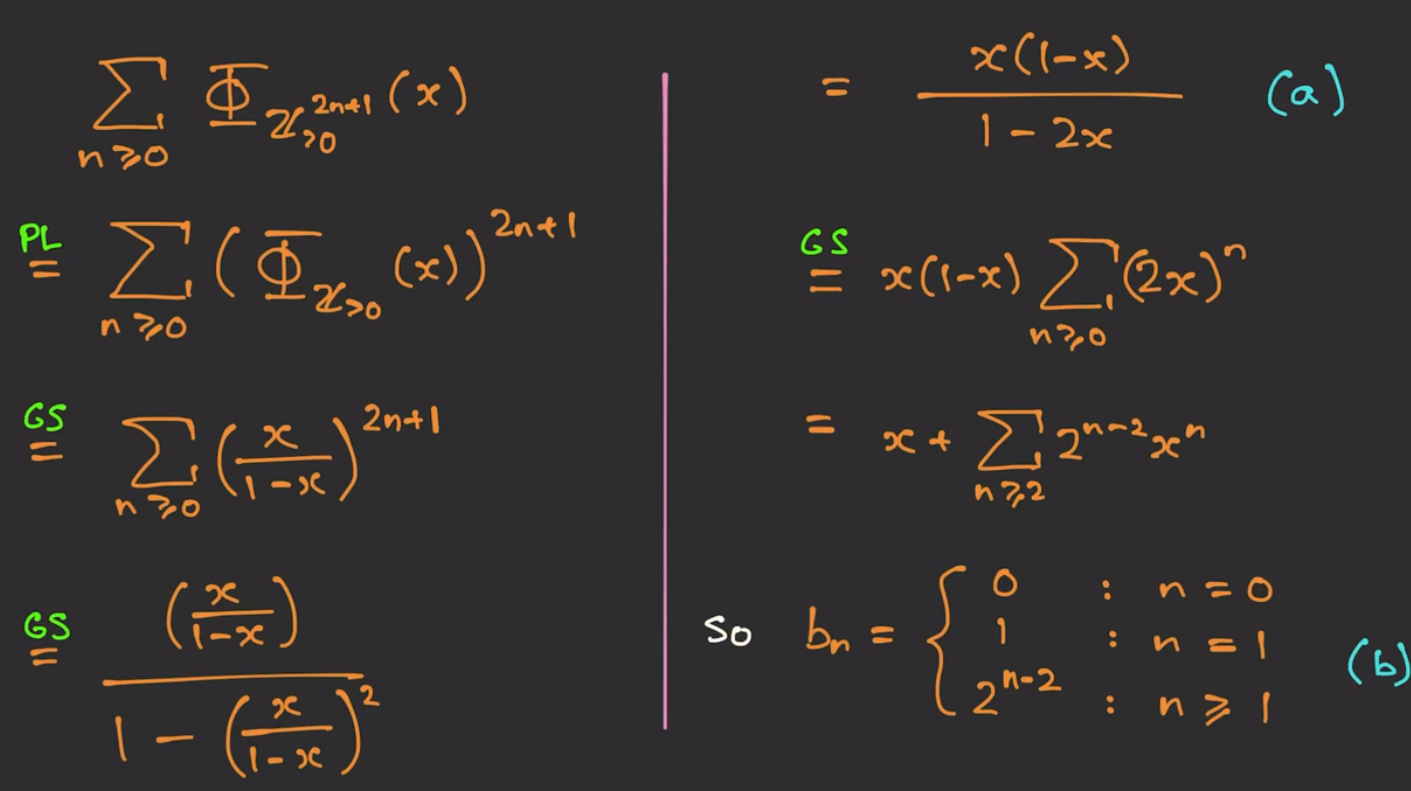 \sum_{n \geqslant 0} \Phi_{\mathbb{Z}_{>0}^{2n+1}}(x)
PL = \sum_{n \geqslant 0} \left( \Phi_{\mathbb{Z}_{>0}}(x) \right)^{2n+1}
GS = \sum_{n \geqslant 0} \left( \frac{x}{1-x} \right)^{2n+1}
GS = \frac{\left( \frac{x}{1-x} \right)}{1 - \left( \frac{x}{1-x} \right)^2}
= \frac{x(1-x)}{1-2x} (a)
GS = x(1-x) \sum_{n \geqslant 0} (2x)^n
= x + \sum_{n \geqslant 2} 2^{n-2} x^n
So b_n = \begin{cases} 0 & : n = 0 \\ 1 & : n = 1 \\ 2^{n-2} & : n \geqslant 1 \end{cases} (b)